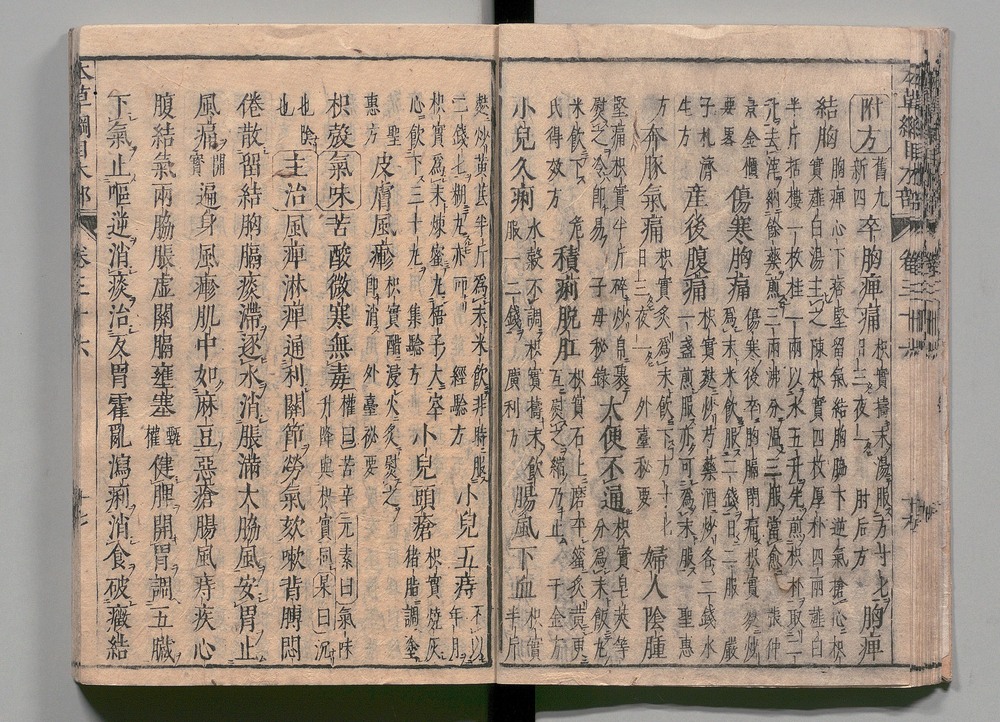 附方
舊九
新四
卒胸痺痛
枳實擣末湯服方寸匕
日三夜一
肘后方
胸痺
結胸
胸痺心下痞堅留氣結胸脇下逆氣搶心枳
實薤白湯主之陳枳實四枚厚朴四兩薤白
半斤栝樓一枚桂一兩以水五升先煎枳朴取二
升去滓納餘藥煎三兩沸分溫三服當愈張仲
景金匱
要畧
傷寒胸痛
傷寒後卒胸膈閉痛枳實麩炒
為末米飲服二錢日二服
嚴
子禮濟
生方
産後腹痛
枳實麩炒芍藥酒炒各二錢水
一盞煎服亦可為末服
聖惠
方
奔豚氣痛
枳實炙為末飲下方寸匕
日三夜一
外臺秘要
婦人陰腫
堅痛枳實半斤碎炒帛裹
熨之冷即易
子母秘錄
大便不通
枳實皂莢等
分為末飯丸
米飲下
危
氏得效方
積痢脫肛
枳實石上磨平蜜炙黃更
互熨之縮乃止
千金方
小兒久痢
水穀不調枳實擣末飲
服一二錢
廣利方
腸風下血
枳實
半斤
麩炒黃芪半斤為末米飲非時服
二錢匕糊丸亦可
經驗方
小兒五痔
不以
年月
枳實為末煉蜜丸梧子大空
心飲下三十丸
集驗方
小兒頭瘡
枳實燒灰
猪脂調塗
聖
惠方
皮膚風𤺋
枳實醋浸火炙熨之
即消
外臺秘要
枳殼
氣味
苦酸微寒無毒
權曰苦辛元素曰氣味
升降與枳實同杲曰沉
也陰
也
主治
風痺淋痺通利關節勞氣欬嗽背膊悶
倦散留結胸膈痰滯逐水消脹滿大脇風安胃止
風痛
開
寶
遍身風𤺋肌中如麻豆惡瘡腸風痔疾心
腹結氣兩脇脹虛關膈壅塞
甄
權
健脾開胃調五臟
下氣止嘔逆消痰治反胃霍亂瀉痢消食破癥結